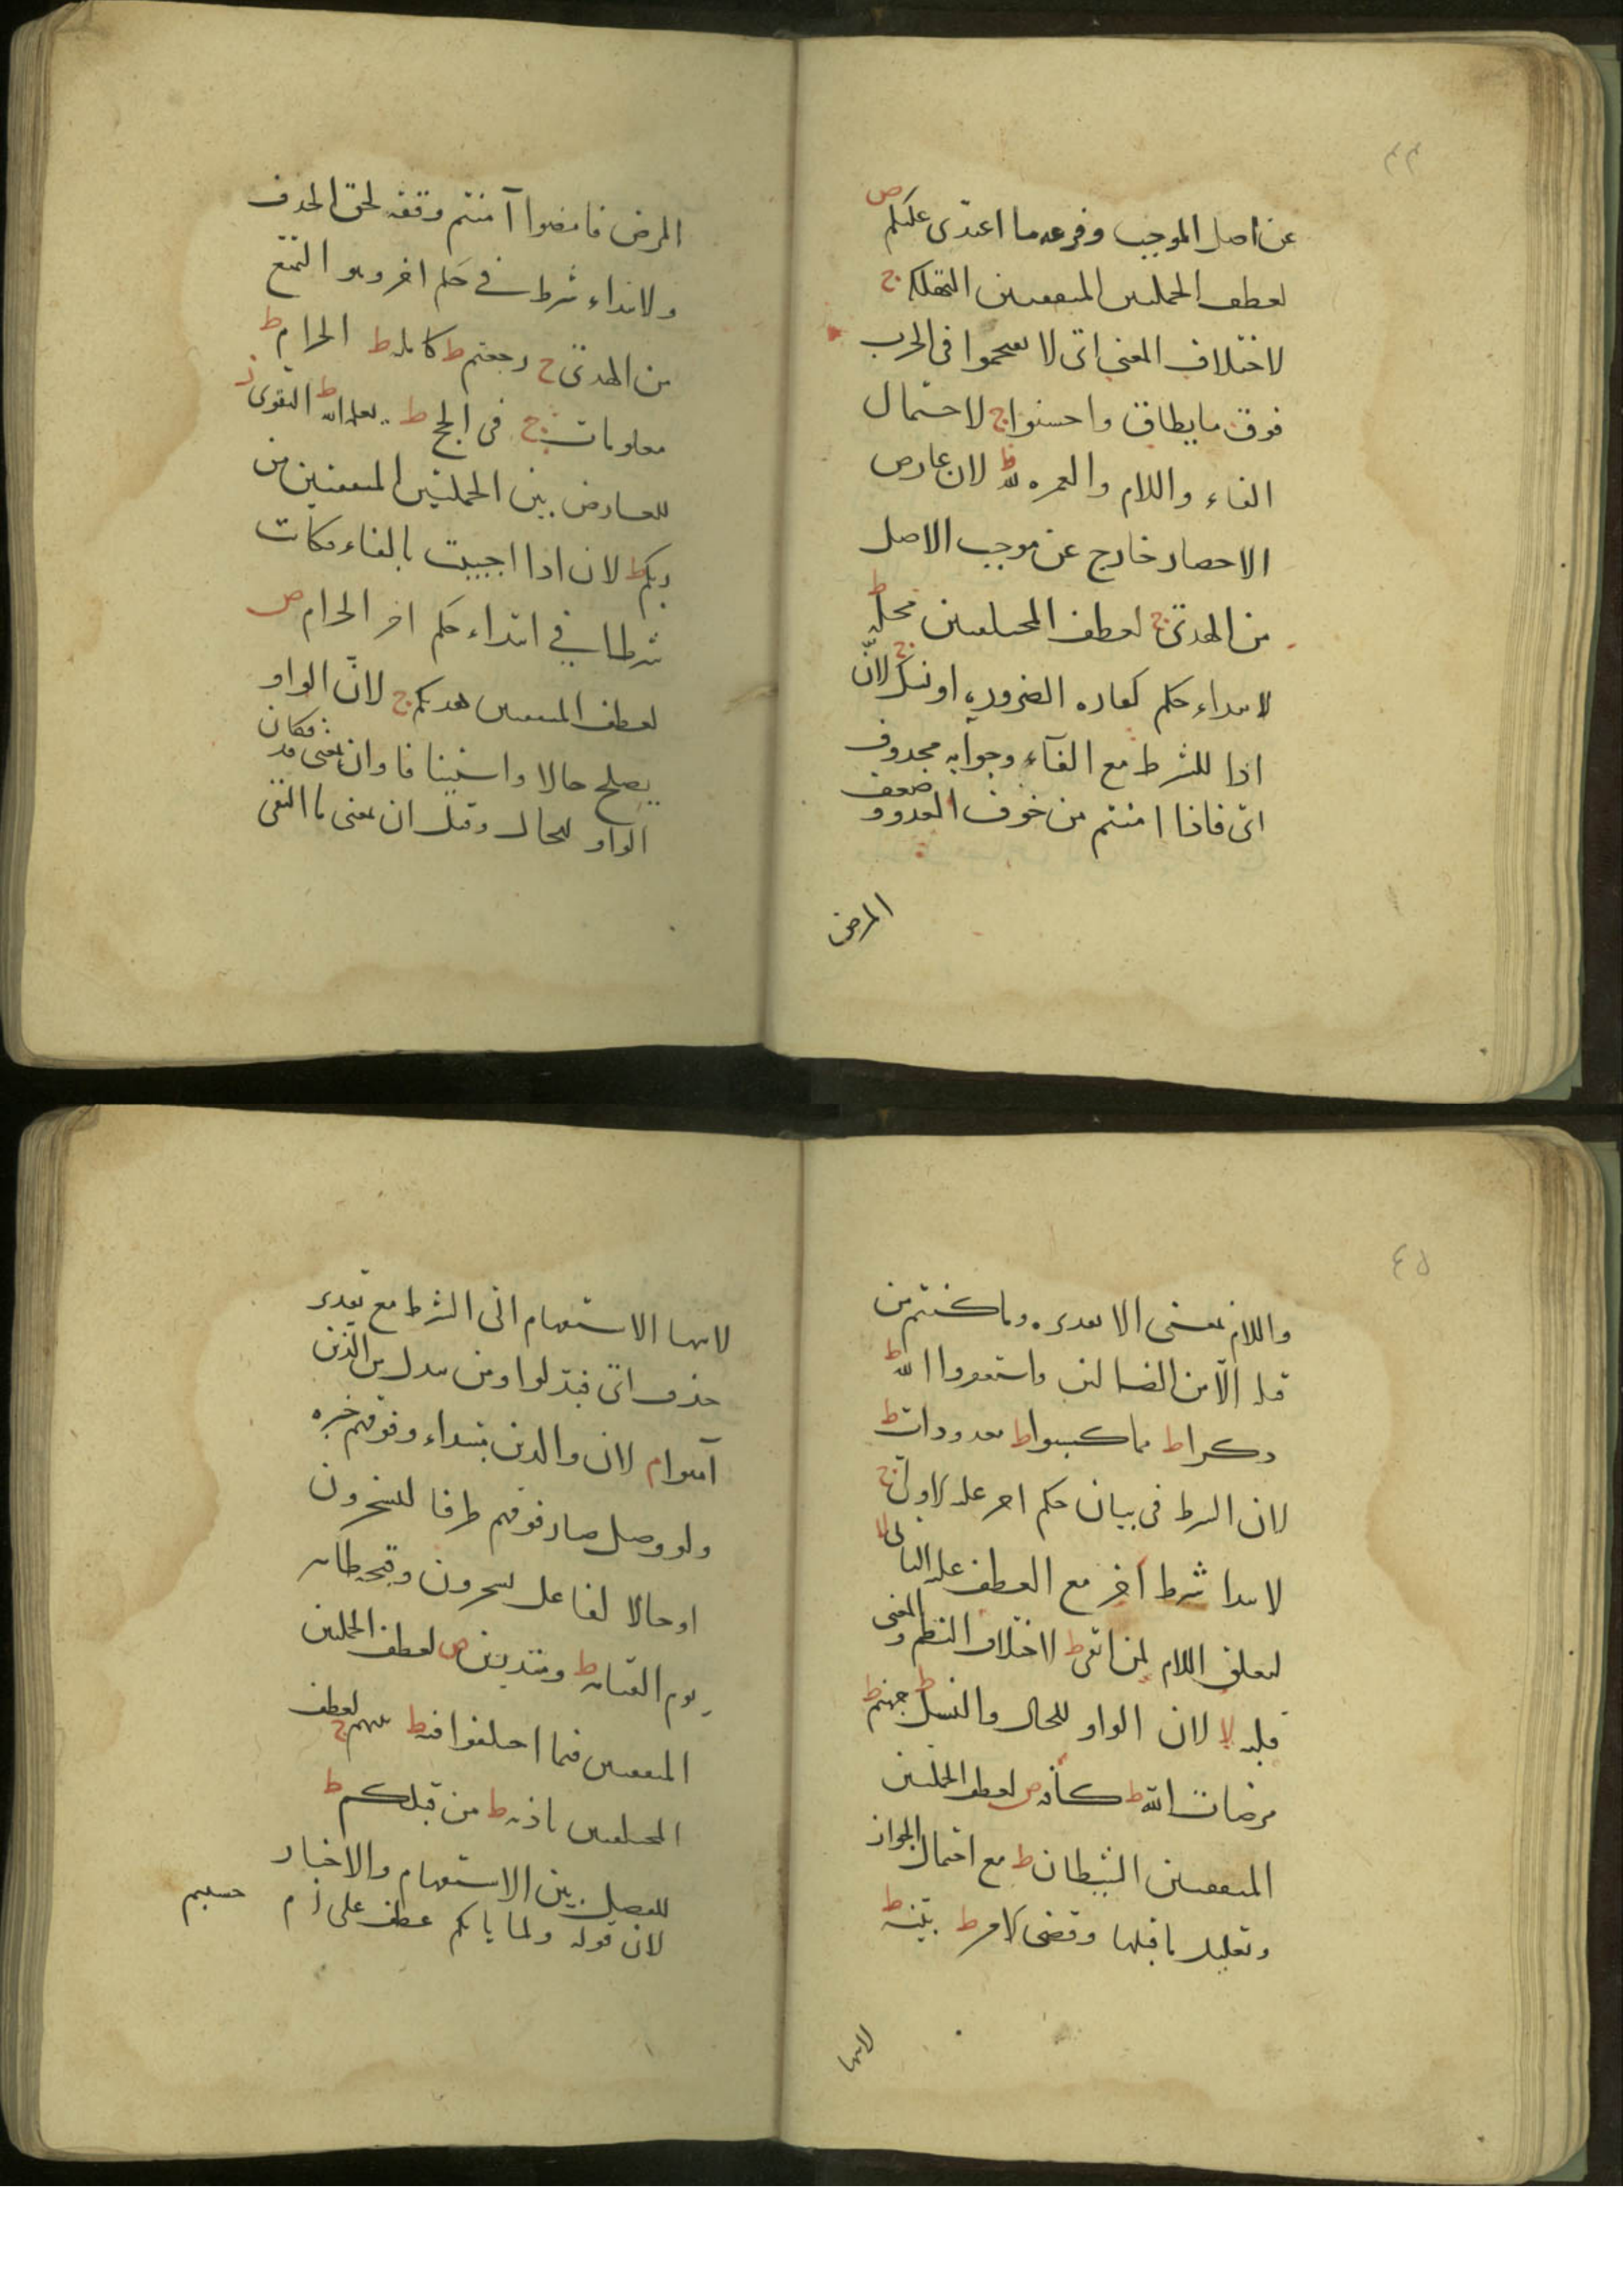 ٤٤
عن اصل الموجب وفرعه ما اعتدى عليكم ص
لعطف الجملتين المتفقتين التهلكة ج
لاختلاف المعنى اى لا تقتحموا فى الحرب
فوق ما يطاق واحسنوا ج لاحتمال
الفاء واللام والعمره لله ط لان عارض
الاحصار خارج عن موجب الاصل
من الهدى ج لعطف المختلفتين محله ط
لابتداء حكم كفاره الضرورة او نسك ج لانّ
اذا للشرط مع الفآء وجوابه محذوف
اى فاذا امنتم من خوف العدو و ضعف
المرض
المرض فامضوا آمنتم وقفه لحق الحذف
ولابتداء شرط فى حكم اخر وهو التمتع
من الهدى ج رجعتم ط كامله ط الحرام ط
معلومات ج فى الحج ط يعلمه الله ط التقوى ز
للعارض بين الجملتين المتفقتين من
ربكم ط لان اذا اجيبت بالفاء فكانت
شرطا فى ابتداء حكم اخر الحرام ص
لعطف المتفقتين هديكم ج لانّ الواو
يصلح حالا واستينافا وان بمعنى قد فكان
الواو للحال وقيل ان بمعنى ما النفى
٤٥
واللام بمعنى الا تقديره وما كنتم من
قبله الّا من الضالين واستغفروا الله ط
ذكرا ط مما كسبوا ط معدودات ط
لان الشرط فى بيان حكم اخر عليه الاول ج
لابتدا شرط آخر مع العطف عليه الثانى لا
لتعلق اللام لمن اتقى ط لاختلاف النظم والمعنى
قلبه لا لان الواو للحال والنسل ط جهنم ط
مرضات الله ط كافه ص لعطف الجملتين
المتفقتين الشيطان ط مع احتمال الجواز
وتعليل ما قبلها وقضى الامر ط بيّنه ط
لانها
لانها الاستفهام الى الشرط مع تقدير
حذف اى فبدّلوا ومن يبدل من الذين
آمنوا م لان والذين مبتداء وفوقهم خبره
ولو وصل صار فوقهم ظرفا ليسخرون
او حالا لفاعل يسخرون وقبحه ظاهر
يوم القيامه ط ومنذرين ص لعطف الجملتين
المتفقتين فيما اختلفوا فيه ط بينهم ج لعطف
المختلفتين باذنه ط من قبلكم ط
للفصل بين الاستفهام والاخبار
لان قوله ولما ياتكم عطف على ام حسبتم